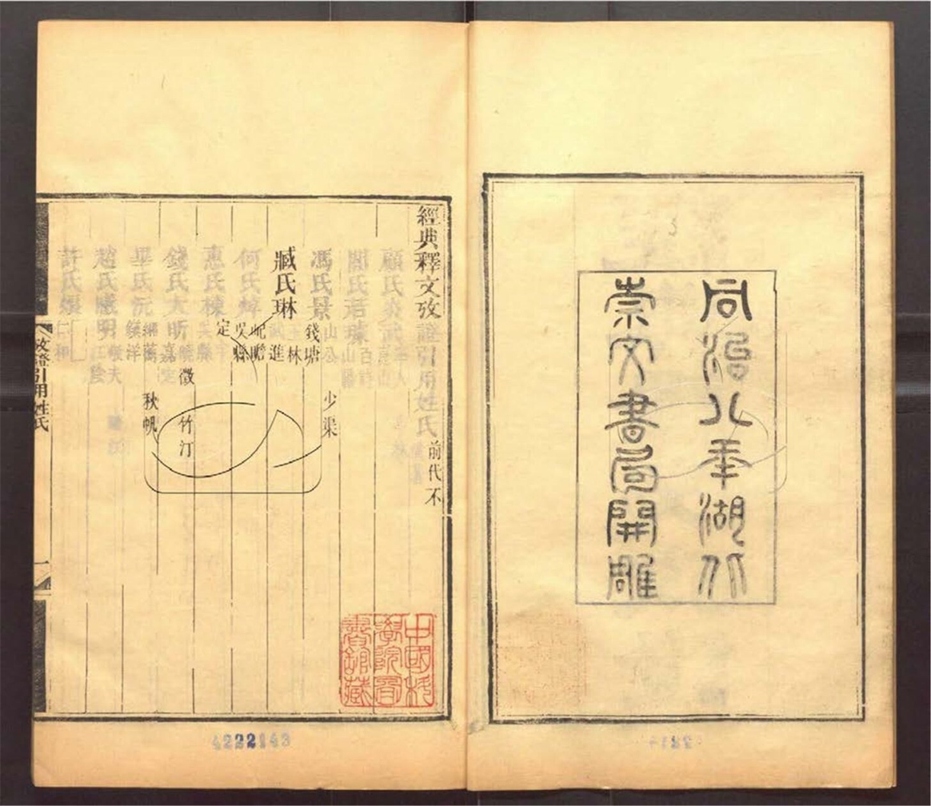 同治八年湖北
崇文書局開雕
經典釋文攷證引用姓氏 前代不
顧氏炎武
閻氏若璩 百詩 山陽
馮氏景 山公 少渠 錢塘
臧氏琳 林 進
何氏焯 屺瞻 吳縣
惠氏棟 定
錢氏大昕 徵 竹汀 嘉定
畢氏沅 秋帆 鎮洋
趙氏曦明 敬夫 江陰
許氏烺 仁和
攷證引用姓氏
一
中國科
學院圖
書館藏
4222143